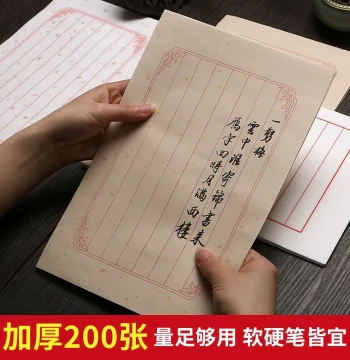 一剪梅
雲中誰寄錦書来
雁字回時月滿西樓
加厚200张 量足够用 软硬笔皆宜